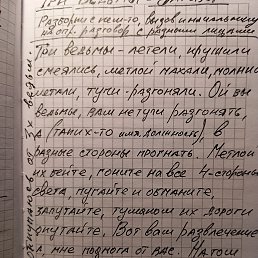 ТРИ ВЕДЬМЫ
Разборки с кем-то, вызов к начальнику
на опр. разговор с разными лицами
Три ведьмы - летели, крушили
смеялись, метлой махали, молнии
метали, тучи - разгоняли. Ой вы
ведьмы, вам не тучи разгонять,
а (таких-то имя, должность), в
разные стороны прогнать. Метлой
их бейте, гоните на все 4-стороны
света, пугайте и обманите,
запутайте, туманом их дороги
опутайте. Вот вам развлечение
а, мне подмога от вас. На том